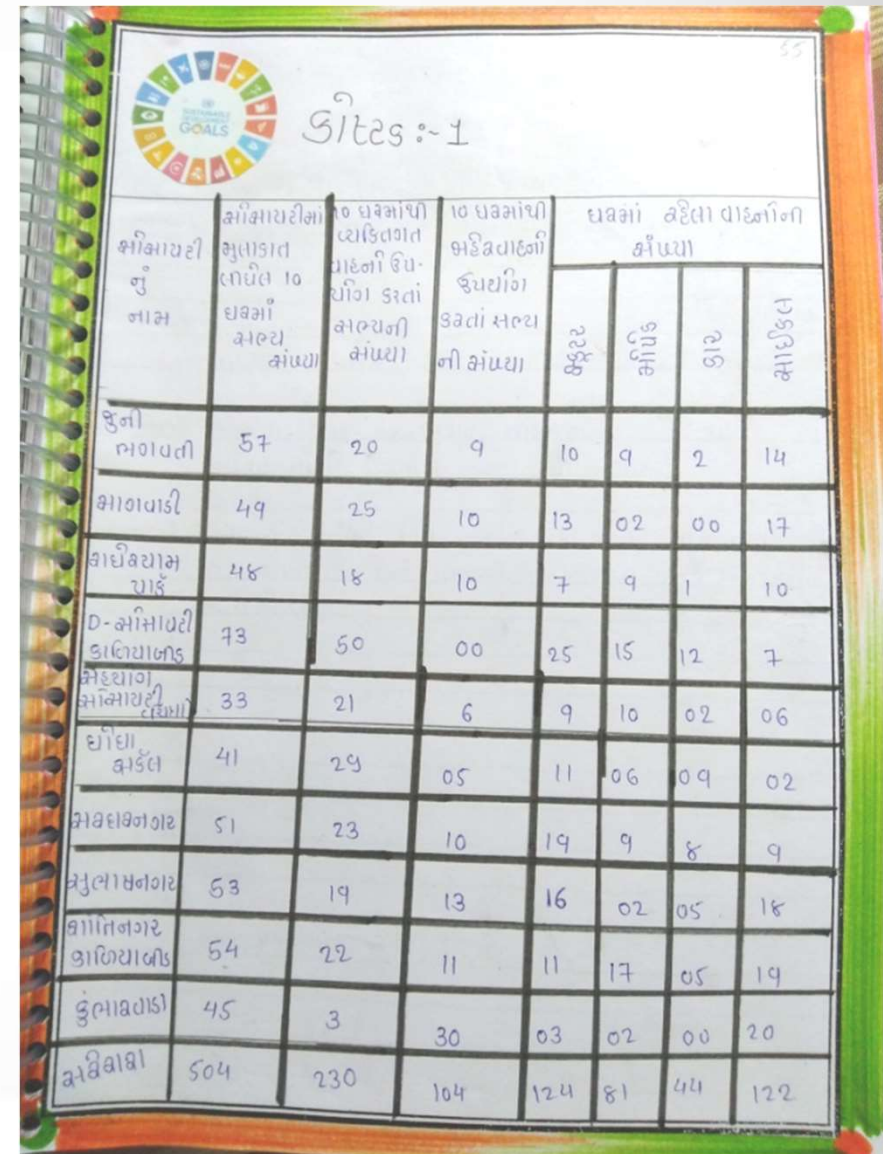 55
SUSTAINABLE
DEVELOPMENT
GOALS
કોષ્ટક :- 1
સોસાયટી
નું
નામ
સોસાયટીમાં
મુલાકાત
લીધેલ 10
ઘરમાં
સભ્ય
સંખ્યા
10 ઘરમાંથી
વ્યક્તિગત
વાહનો ઉપ-
યોગ કરતાં
સભ્યની
સંખ્યા
10 ઘરમાંથી
શહેરવાહનો
ઉપયોગ
કરતાં સભ્ય
ની સંખ્યા
ઘરમાં રહેલા વાહનોની
સંખ્યા
સ્કૂટર
મોપેડ
કાર
સાઈકલ
જુની
ભગવતી 57 20 9 10 9 2 14
સાગવાડી 49 25 10 13 02 00 17
રાધેશ્યામ
પાર્ક 48 18 10 7 9 1 10
D-સોસાયટી
કાળિયાબીડ 73 50 00 25 15 12 7
સહયોગ
સોસાયટી 33 21 6 9 10 02 06
ઘોઘા
સર્કલ 41 29 05 11 06 09 02
સરદારનગર 51 23 10 19 9 8 9
સુભાષનગર 53 19 13 16 02 05 18
શાંતિનગર
કાળિયાબીડ 54 22 11 11 17 05 19
કુંભારવાડા 45 3 30 03 02 00 20
સરેરાશ 504 230 104 124 81 44 122